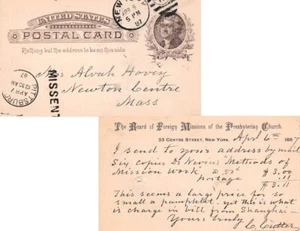 UNITED STATES
POSTAL CARD
Nothing but the address to be on this side.
NEW YO
6 PM
87
MISSENT
Mrs Alvah Hovey
Newton Centre
Mass
The Board of Foreign Missions of the Presbyterian Church.
53 CENTRE STREET, NEW YORK, April 6th 188
I send to your address by mail
Six copies Nevius Methods of
Mission Work $3.00
Postage .11
$3.11
This seems a large price for so
small a pamphlet - yet this is what
is charge in bill from Shanghai.
Yours truly